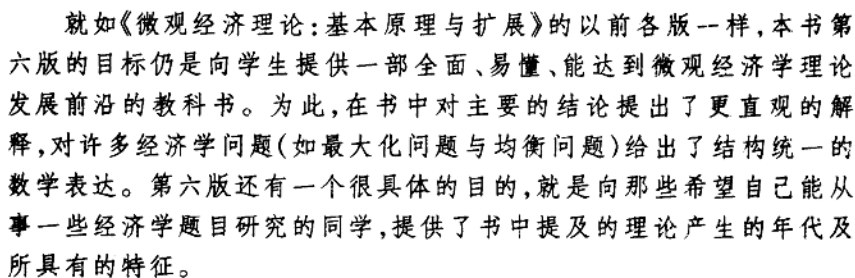 就如《微观经济理论:基本原理与扩展》的以前各版一样,本书第
六版的目标仍是向学生提供一部全面、易懂、能达到微观经济学理论
发展前沿的教科书。为此,在书中对主要的结论提出了更直观的解
释,对许多经济学问题(如最大化问题与均衡问题)给出了结构统一的
数学表达。第六版还有一个很具体的目的,就是向那些希望自己能从
事一些经济学题目研究的同学,提供了书中提及的理论产生的年代及
所具有的特征。